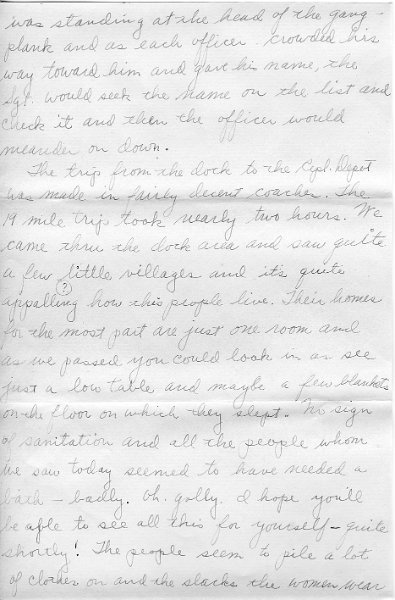 was standing at the head of the gang-
plank and as each officer crowded his
way toward him and gave his name, the
Sgt. would seek the name on the list and
check it and then the officer would
meander on down.
The trip from the dock to the Repl. Depot
was made in fairly decent coaches. The
19 mile trip took nearly two hours. We
came thru the dock area and saw quite
a few little villages and it's quite
(?)
appalling how this people live. Their homes
for the most part are just one room and
as we passed you could look in as see
just a low table and maybe a few blankets
on the floor on which they slept. No sign
of sanitation and all the people whom
we saw today seemed to have needed a
bath - badly. Oh, golly, I hope you'll
be able to see all this for yourself - quite
shortly! The people seem to pile a lot
of clothes on and the slacks the women wear